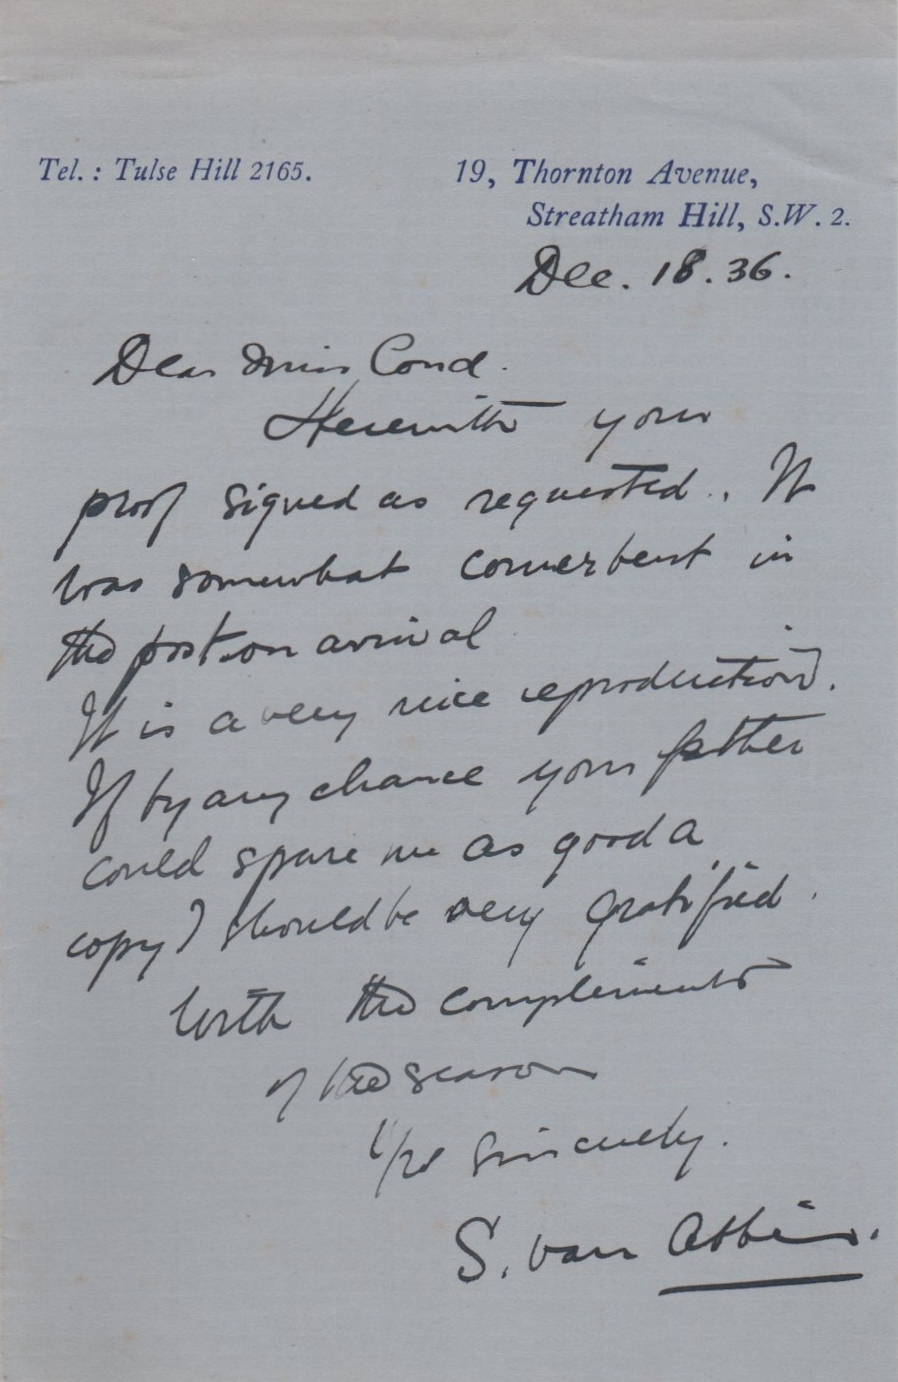 Tel. : Tulse Hill 2165.
19, Thornton Avenue,
Streatham Hill, S.W. 2.
Dec. 18. 36.
Dear Miss Cond.
Herewith your
proof signed as requested. It
was somewhat cornerbent in
the post on arrival
It is a very nice reproduction.
If by any chance your father
could spare me as good a
copy I should be very gratified.
With the compliments
of the season
Yrs sincerely.
S. van Abbé.